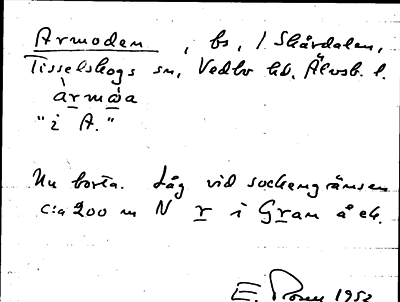 Armoden, bs, / Skårdalen,
Tisselskogs sn, Vedbo hd, Älvsb. l.
àrmὼa
"i A."
Nu borta. Låg vid sockengränsen
c:a 200 m N r i Gran å ek.
E. 1952